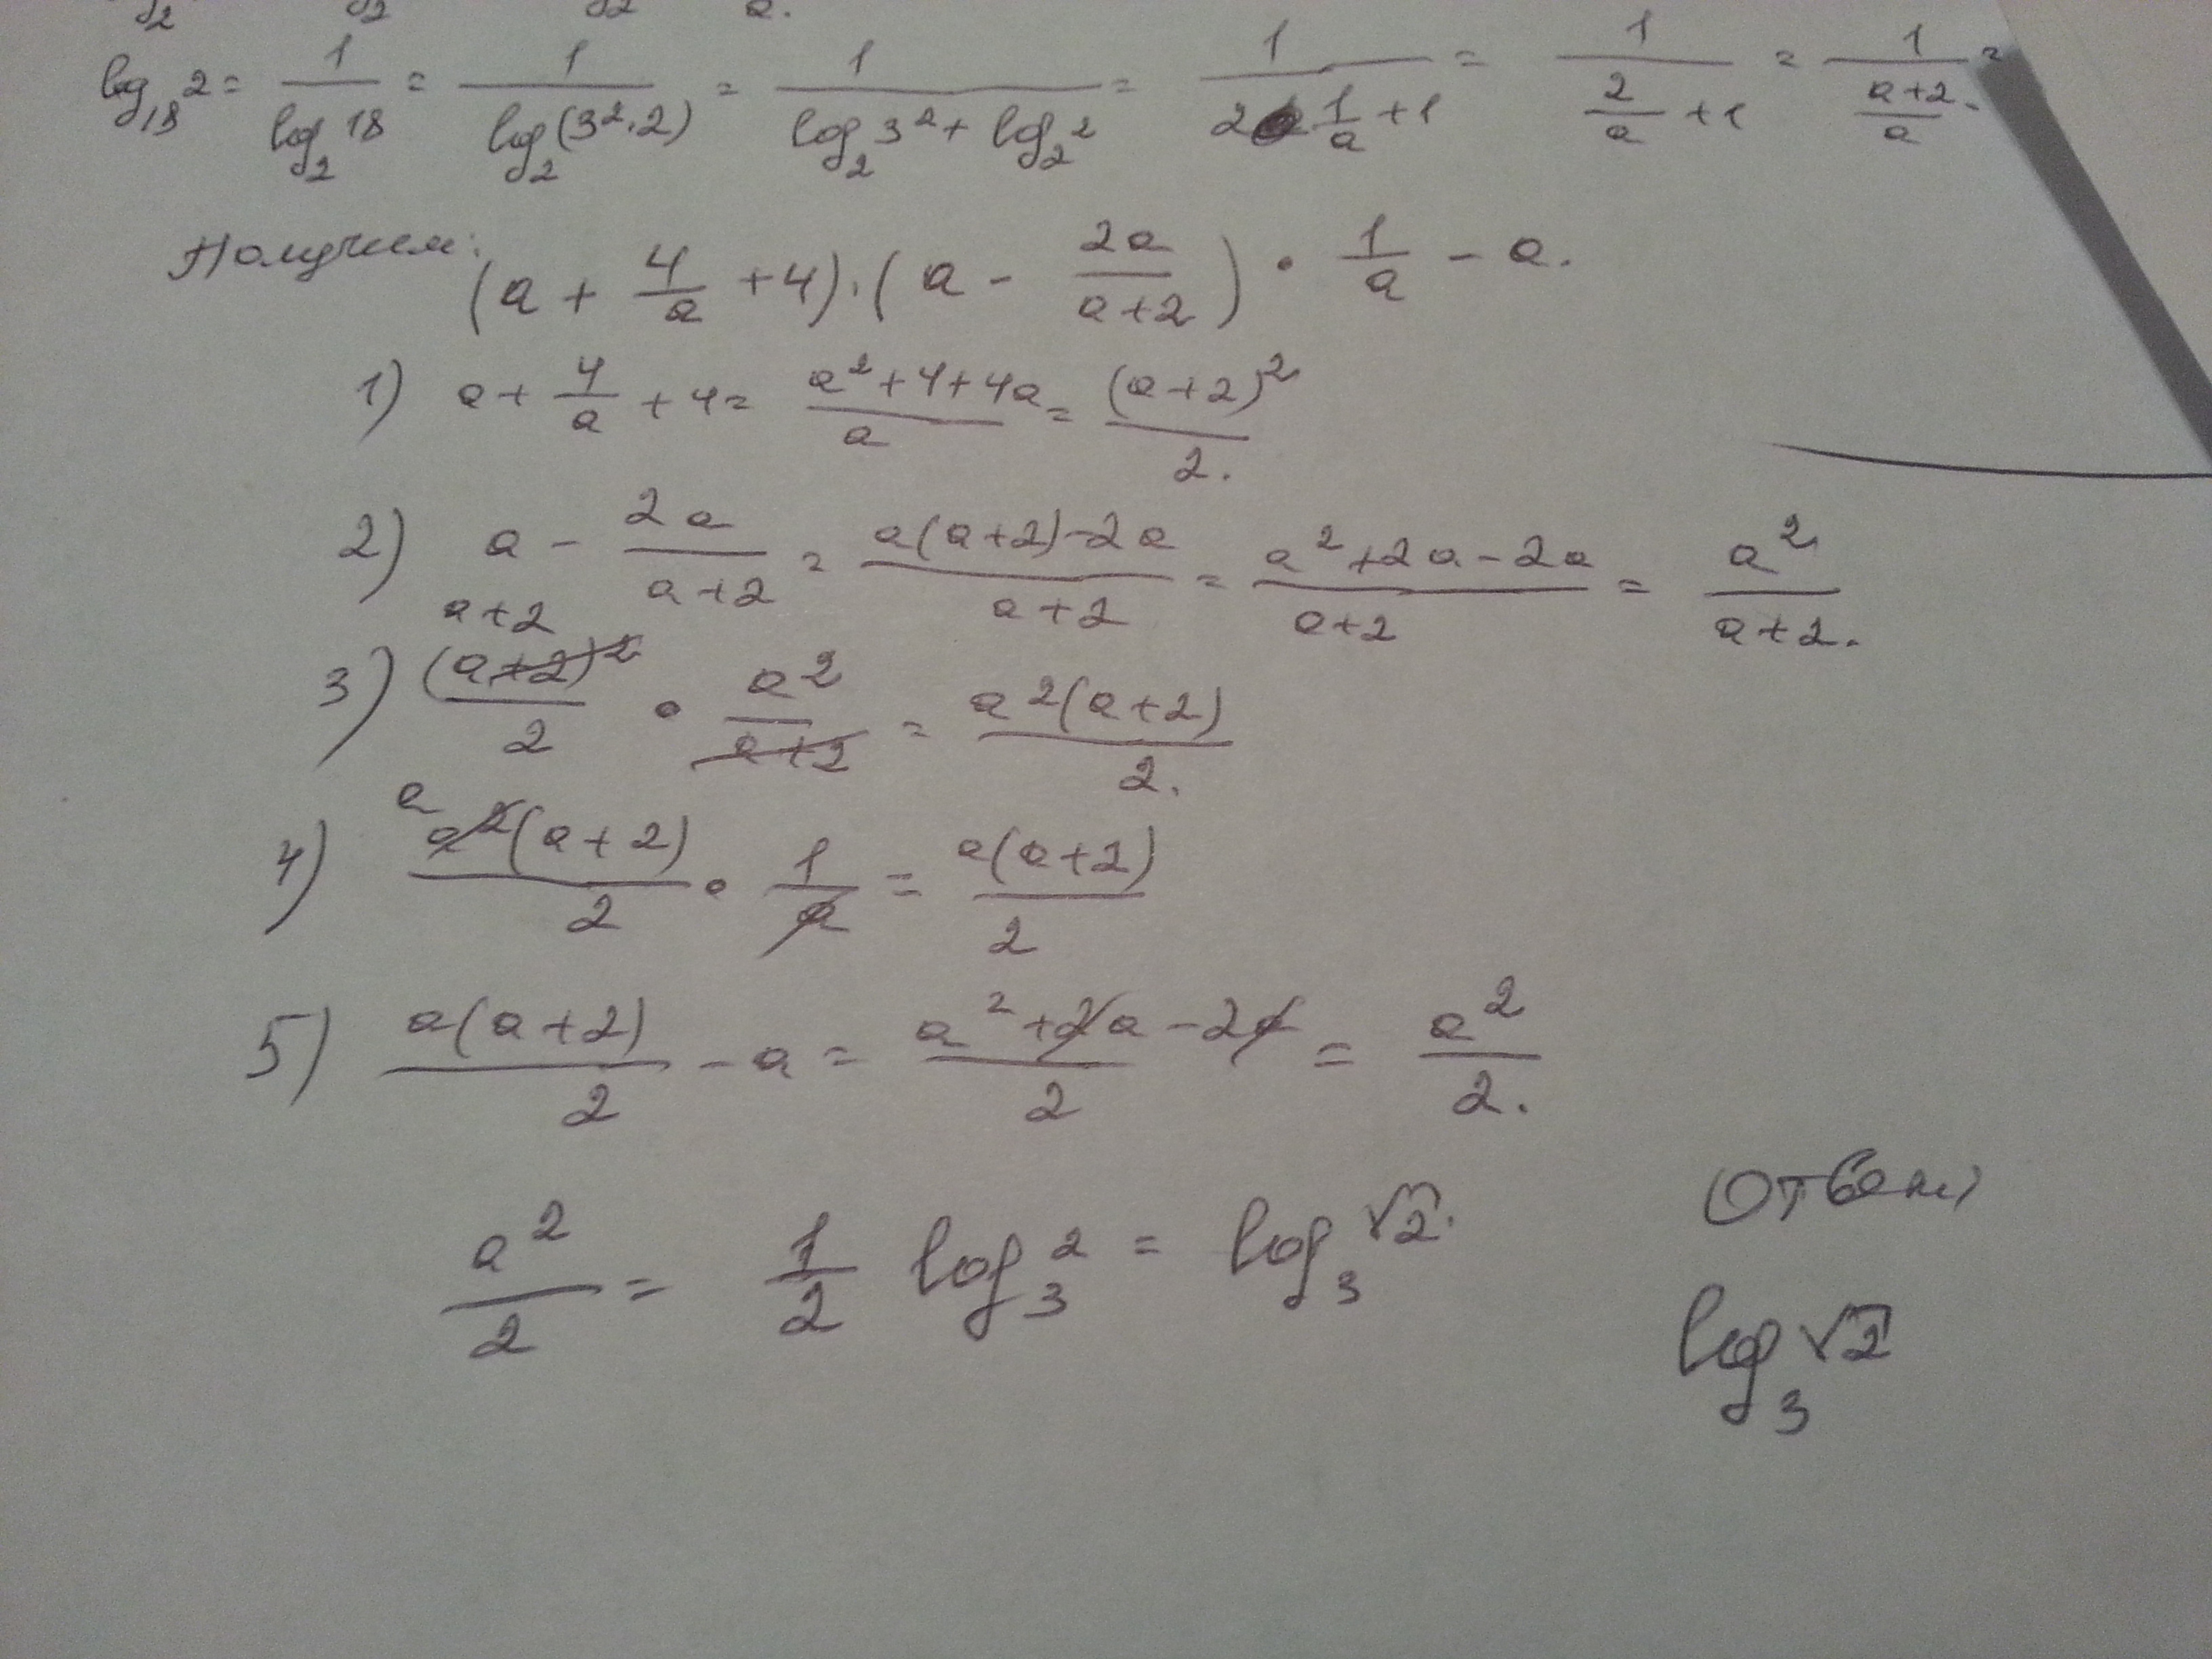 log₁₈2 = 1/log₂18 = 1/log₂(3²·2) = 1/(log₂3² + log₂2) = 1/(2 1/a + 1) = 1/(2/a + 1) = 1/((a+2)/a) =
Получим:
(a + 4/a + 4)·(a - 2a/(a+2)) · 1/a - a.
1) a + 4/a + 4 = (a²+4+4a)/a = (a+2)²/2.
2) a - 2a/(a+2) = (a(a+2)-2a)/(a+2) = (a²+2a-2a)/(a+2) = a²/(a+2).
a+2
3) (a+2)²/2 · a²/(a+2) = a²(a+2)/2.
a
4) a²(a+2)/2 · 1/a = a(a+2)/2
5) a(a+2)/2 - a = (a²+2a-2a)/2 = a²/2.
a²/2 = 1/2 log₃2 = log₃√2.
Ответ
log₃√2